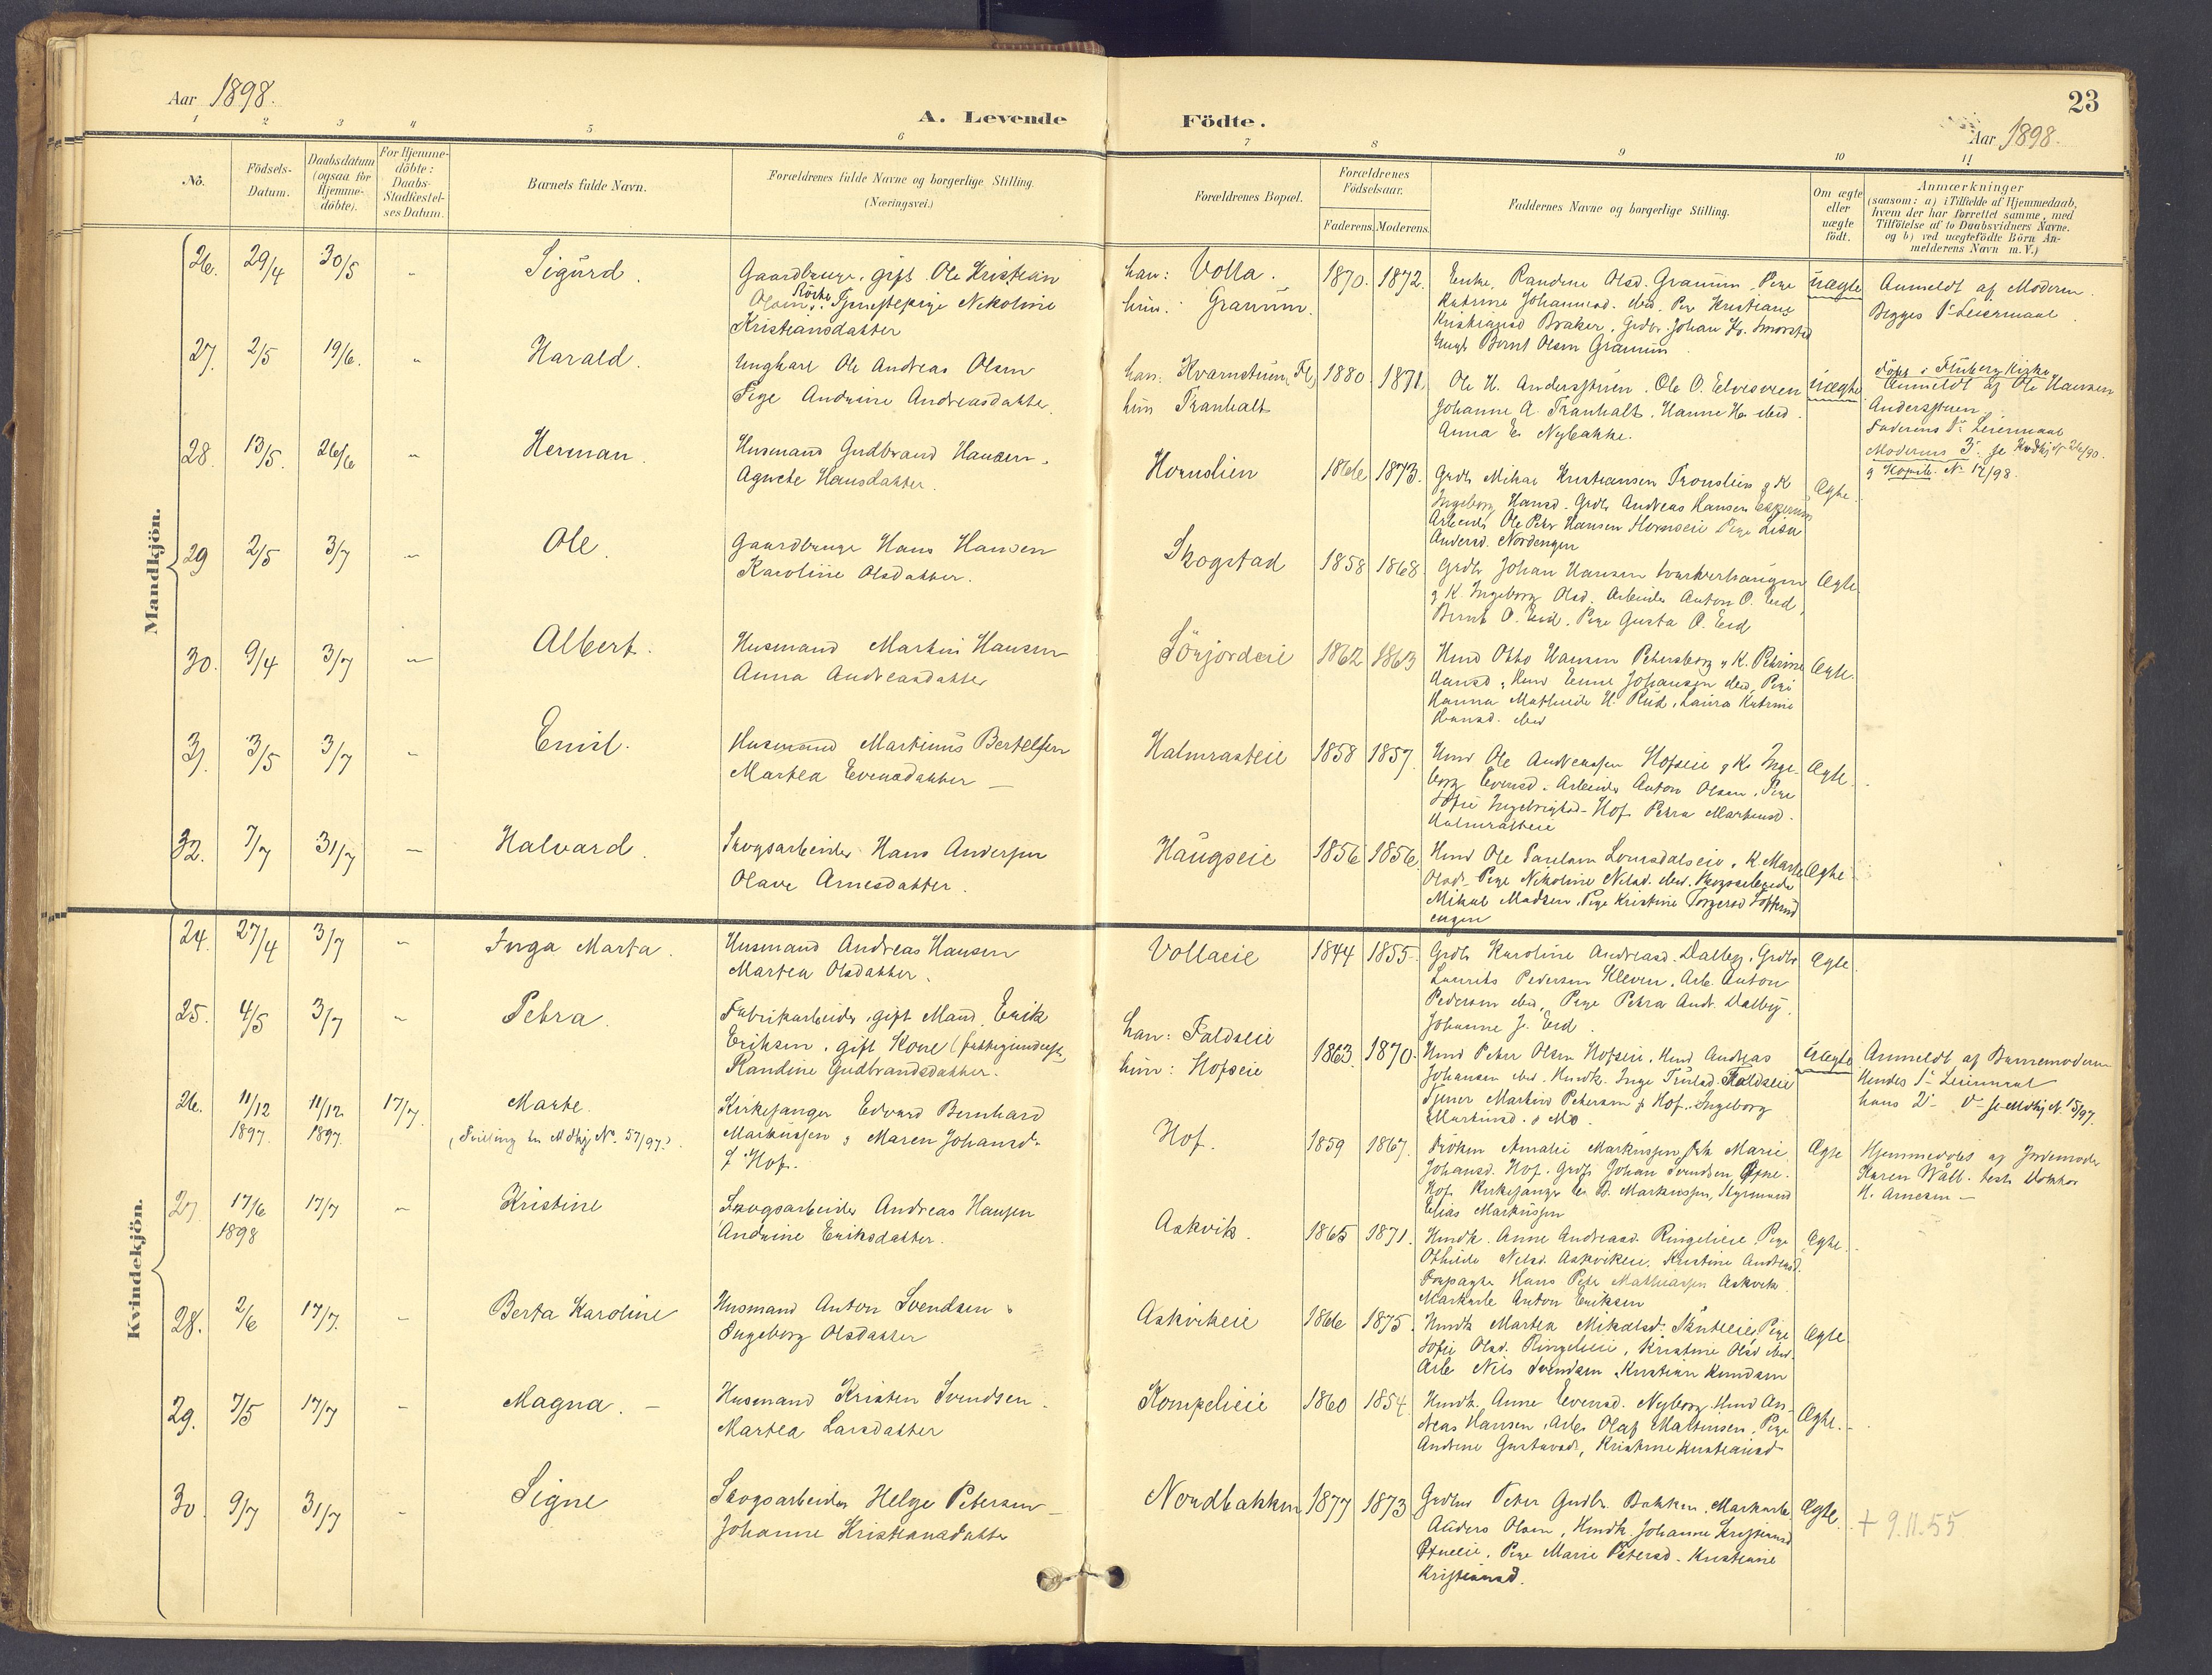 Aar 1898.
A. Levende Födte.
23
Aar 1898.
1 2 3 4 5 6 7 8 9 10 11
No.
Födsels-
Datum.
Daabsdatum
(ogsaa for
Hjemme-
döbte).
For Hjemme-
döbte:
Daabs-
Stadfæstel-
ses Datum.
Barnets fulde Navn.
Forældrenes fulde Navne og borgerlige Stilling.
(Næringsvei.)
Forældrenes Bopæl.
Forældrenes
Födselsaar.
Faderens. Moderens.
Faddernes Navne og borgerlige Stilling.
Om ægte
eller
uægte
födt.
Anmærkninger
(saasom: a) i Tilfælde af Hjemmedaab,
hvem der har forrettet samme, med
Tilföielse af to Daabsvidners Navne.
og b) ved uægtefödte Börn An-
melderens Navn m.V.)
Mandkjön.
26. 29/4 30/5 - Sigurd.
Gaardbruger, gift Ole Kristian
Olsen Tjenestepige Nikoline
Kristiansdatter
han: Volla.
hun: Granum.
1870. 1872.
Enke Randine Olsd. Granum, Pige
Katrine Johannesd. ibid, Pige Kristiane
Kristiansd Braker, Grdbr. Johan
Ungk Bernt Olsen Granum
uægte
Anmeldt af Moderen.
Begges 1ste Leiermaal.
27. 2/5 19/6. - Harald.
Ungkarl Ole Andreas Olsen
Pige Andrine Andreasdatter
han: Kvarnstuen, Fl.
hun Tranhalt
1880 1871
Ole H. Anderstuen. Ole O. Elvesveen
Johanne A. Tranhalt. Hanne H. ibid.
Anna E. Nybakke.
uægte
döbt i Fluberg Kirke
Anmeldt af Ole Hansen
Anderstuen.
Faderens 1ste Leiermaal
Moderens 3.
28. 13/5. 26/6 - Herman.
Husmand Gudbrand Hansen.
Agnete Hansdatter.
Hornslien
1866 1873.
Grdbr Mikal Kristiansen & K
Ingeborg Hansd. Grdbr Andreas Hansen
Arbeider Ole Peter Hansen Pige Lisa
Andersd. Nordengen
Ægte.
29 2/5 3/7 - Ole.
Gaardbruger Hans Hansen
Karoline Olsdatter.
Skogstad
1858 1868.
Grdbr Johan Hansen
& K. Ingeborg Olsd. Arbeider Anton O. Eid,
Bernt O. Eid. Pige Gusta O. Eid
Ægte
30. 9/4 3/7 - Albert.
Husmand Martin Hansen
Anna Andreasdatter
Sörjordeie
1862 1863
Hmd Otto Hansen Petersborg & K. Petrine
Hansd, Hmd Enne Johansen ibid, Pige
Hanna Mathilde H. Rud, Laura Katrine
Hansd. ibid
Ægte.
31. 3/5 3/7 - Emil.
Husmand Martinus Bertelsen
Martea Evensdatter
Halmrasteie
1858 1857.
Hmd Ole Andreassen Hofseie & K. Inge-
borg Evensd. Arbeider Anton Olsen, Pige
Sofie Hof. Petra Martinsd.
Halmrasteie
Ægte.
32. 7/7 31/7 - Halvard.
Skogsarbeider Hans Andersen
Olave Arnesdatter.
Haugseie
1856 1856
Hmd Ole Paulsen, K. Marte
Olsd. Pige Nikoline Nilsd. ibid. Skogsarbeider
Mikal Madsen, Pige Kristine Torgersd
engen
Ægte
Kvindekjön.
24. 27/4 3/7 - Inga Marta.
Husmand Andreas Hansen
Martea Olsdatter.
Vollaeie
1844 1855
Grdbr Karoline Andreasd. Dalby, Grdbr
Laurits Pedersen Kleven, Arb. Anton
Pedersen ibid, Pige Petra Andr. Dalby.
Johanne J. Eid.
Ægte
25. 4/5 3/7 - Petra.
Fabrikarbeider, gift Mand, Erik
Eriksen, gift Kone
Randine Gudbrandsdatter.
han: Faldseie
hun: Hofseie
1863. 1870.
Hmd Peter Olsen Hofseie, Hmd Andreas
Johansen ibid. Hmdk. Inge Faldseie
Tjener Martin Petersen Hof. Ingeborg
Martinsd. Mo.
uægte
Anmeldt af Barnemoderen
Hendes 1ste Leiermaal
hans 2. No 15/97.
26. 11/12 1897. 11/12. 1897. 17/7. Marte.
(Tvilling No. 57/97.)
Kirkesanger Edvard Bernhard
Markussen & Maren Johansd.
Hof.
Hof.
1859 1867.
Fröken Amalie Markussen, Marie
Johansd. Hof. Grdbr Johan Svendsen
Hof. Kirkesanger E. B. Markussen, Styrmand
Elias Markussen
Ægte
Hjemmedöbt af Jordemoder
Karen Wåll. test. Doktor
H. Arnesen
27. 17/6 1898 17/7 - Kristine
Skogsarbeider Andreas Hansen
Andrine Eriksdatter.
Askvik.
1865 1871.
Hmdk. Anne Andreasd. Ringelieie Pige
Othilde Nilsd. Askvikeie. Kristine Andreasd.
Forpagter Hans Peter Mathiassen Askvik
Anton Eriksen
Ægte.
28. 2/6 17/7. - Berta Karoline
Husmand Anton Svendsen &
Ingeborg Olsdatter
Askvikeie
1866 1875.
Hmdk Martea Mikalsd. Pige
Sofie Olsd. Ringelieie, Kristine Olsd ibid.
Arb Nils Svendsen, Kristian
Ægte.
29. 7/5 17/7 - Magna. -
Husmand Kristen Svendsen.
Martea Larsdatter
Kompelieie
1860 1854.
Hmdk. Anne Evensd. Nyborg. Hmd An-
dreas Hansen, Arb. Olaf Martinsen, Pige
Andrine Gustavsd, Kristine Kristiansd
Ægte.
30. 9/7 31/7 - Signe
Skogsarbeider Helge Petersen
Johanne Kristiansdatter
Nordbakken
1877 1873
Peter Gudbr. Bakken,
Anders Olsen, Hmdk. Johanne Kristiansd
Pige Marie Petersd. Kristiane
Kristiansd.
Ægte.
+ 9.11.55.